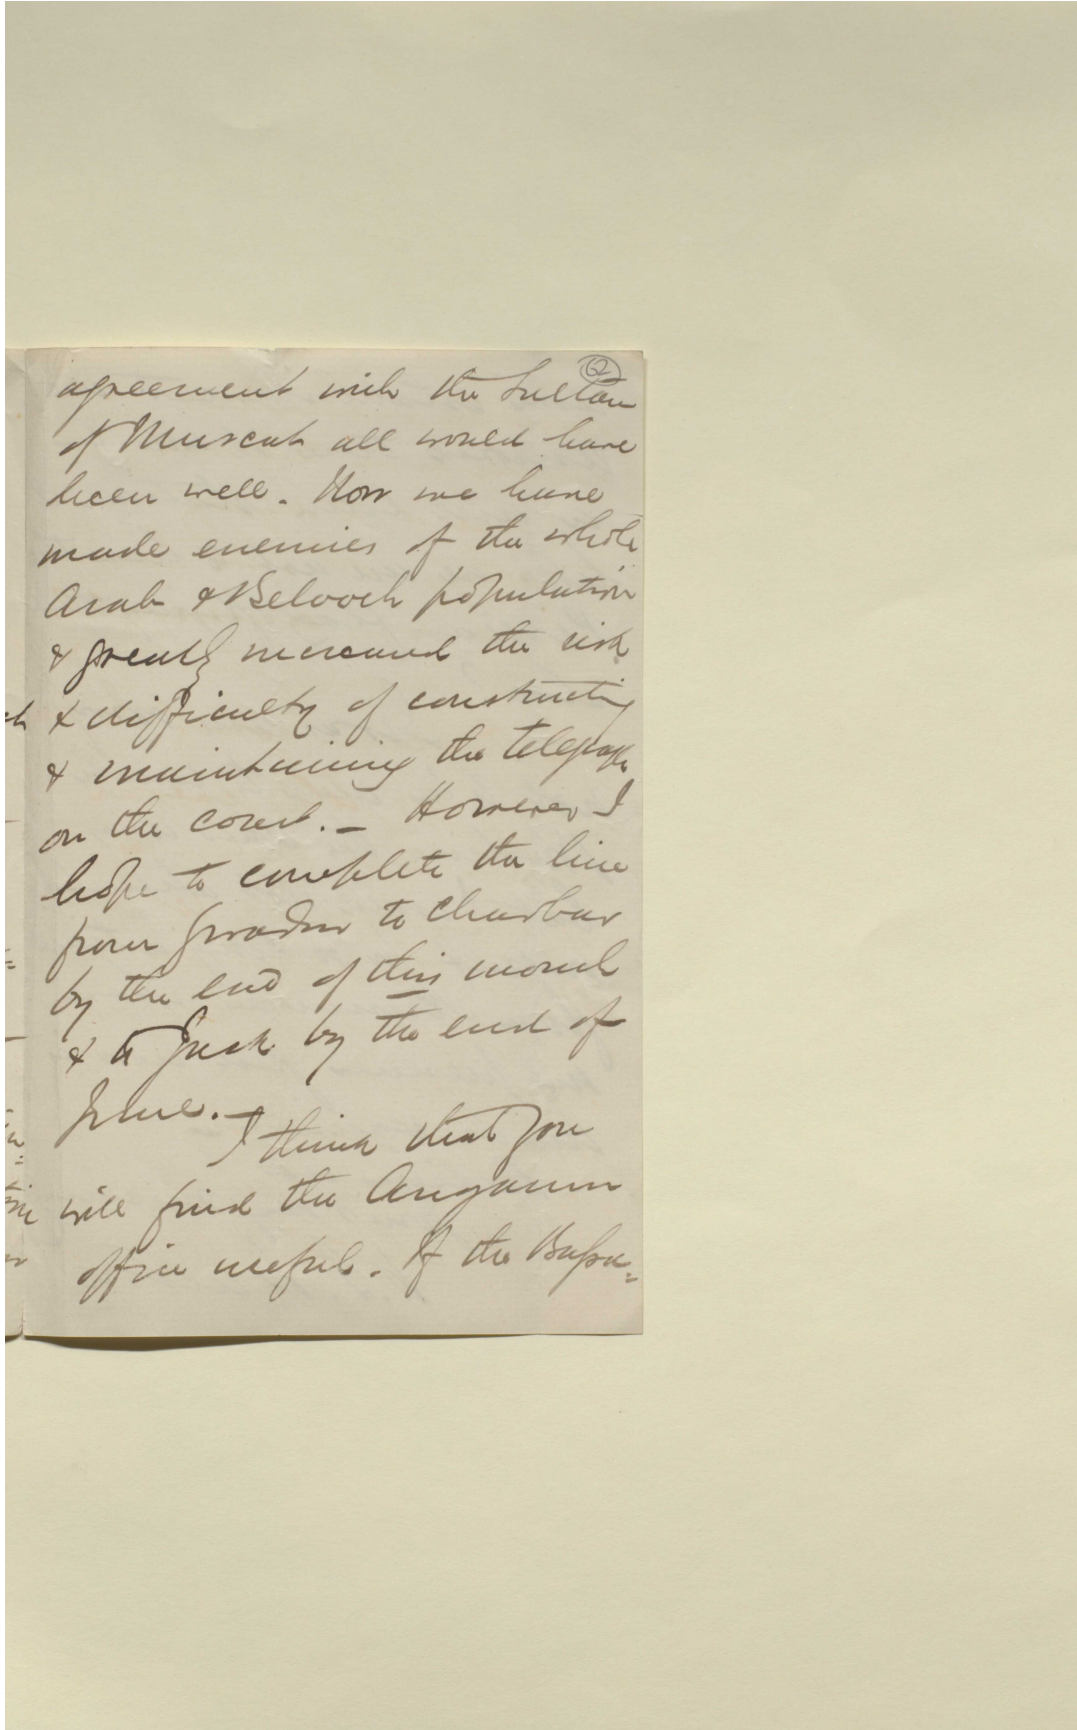 62
agreement with the Sultan
of Muscat all would have
been well. Now we have
made enemies of the whole
Arab & Belooch population
& greatly increased the risk
& difficulty of constructing
& maintaining the telegraph
on the coast. _ However I
hope to complete the line
from Gwadur to Charbar
by the end of this month
& to Jask by the end of
June. _
I think that you
will find the Angaum
office useful. If the Bussa=